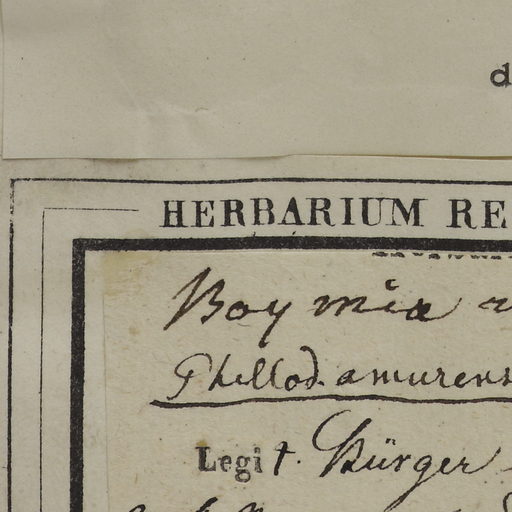 d
HERBARIUM RE
Boymia
Phellod. amurens
Legit. Bürger